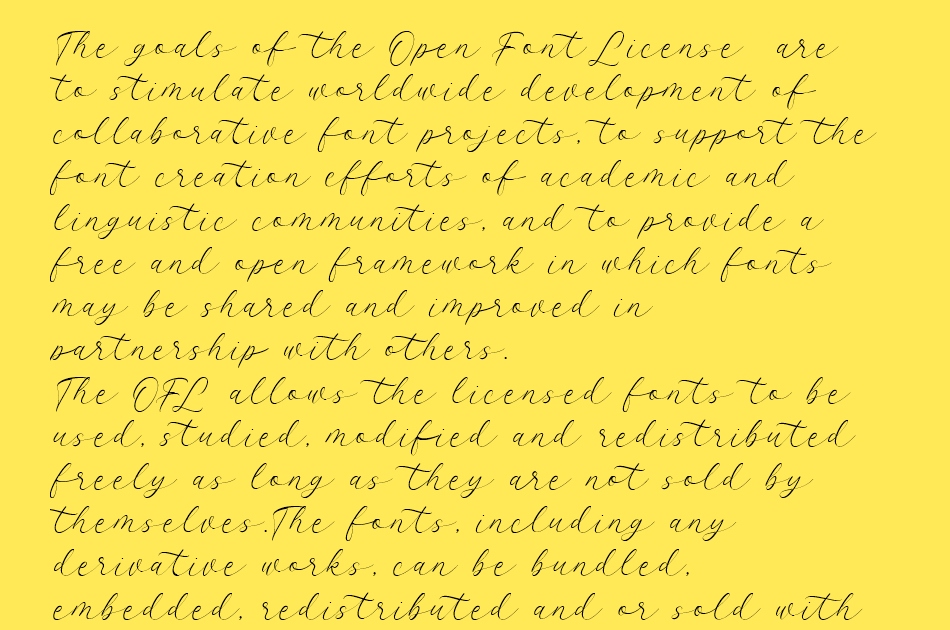 The goals of the Open Font License are
to stimulate worldwide development of
collaborative font projects, to support the
font creation efforts of academic and
linguistic communities, and to provide a
free and open framework in which fonts
may be shared and improved in
partnership with others.
The OFL allows the licensed fonts to be
used, studied, modified and redistributed
freely as long as they are not sold by
themselves.The fonts, including any
derivative works, can be bundled,
embedded, redistributed and or sold with